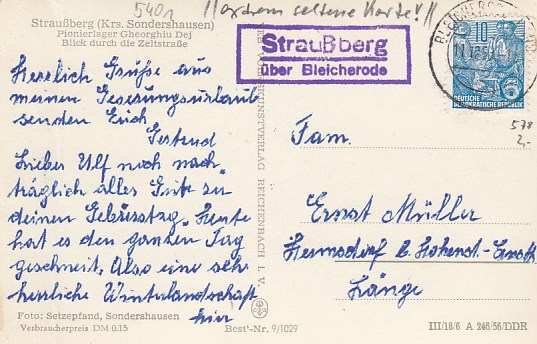 5401 !! enorm seltene Karte! !!
Straußberg (Krs. Sondershausen)
Pionierlager Gheorghiu Dej
Blick durch die Zeltstraße
Straußberg
über Bleicherode
10
DEUTSCHE
DEMOKRATISCHE REPUBLIK
578
2,-
Herzlich Grüße aus
meinen Genesungsurlaub
senden Euch
Gertrud
Lieber Ulf noch nach¬
träglich alles Gute zu
deinen Geburtstag. Heute
hat es den ganzen Tag
geschneit. Also eine sehr
herrliche Winterlandschaft
hier
VERLAG REICHENBACH I. V.
Fam.
Ernst Müller
Hermsdorf b. Hohenst.-Ernstth.
Länge
Foto: Setzepfand, Sondershausen
Verbraucherpreis DM 0.15
Best'-Nr. 9/1029
III/18/6 A 246/56/DDR